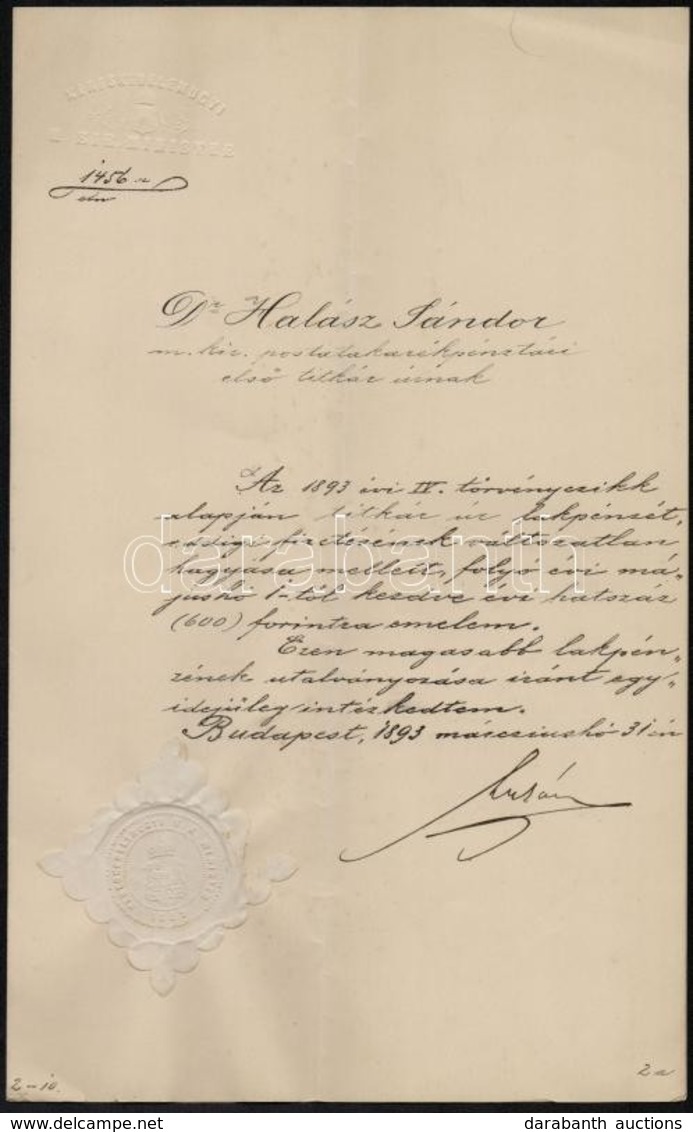 KERESKEDELEMÜGYI
M. KIR. MINISTER
1456 sz
eln
Dr Halász Sándor
m. kir. postatakarékpénztári
első titkár úrnak
Az 1893 évi IV. törvényczikk
alapján titkár úr lakpénzét,
eddigi fizetésének változatlan
hagyása mellett, folyó évi má„
jushó 1-től kezdve évi hatszáz
(600) forintra emelem.
Ezen magasabb lakpén„
zének utalványozása iránt egy„
idejűleg intézkedtem.
Budapest, 1893 márcziushó 31 én
darabanth
2-io.
2a
darabanth auctions